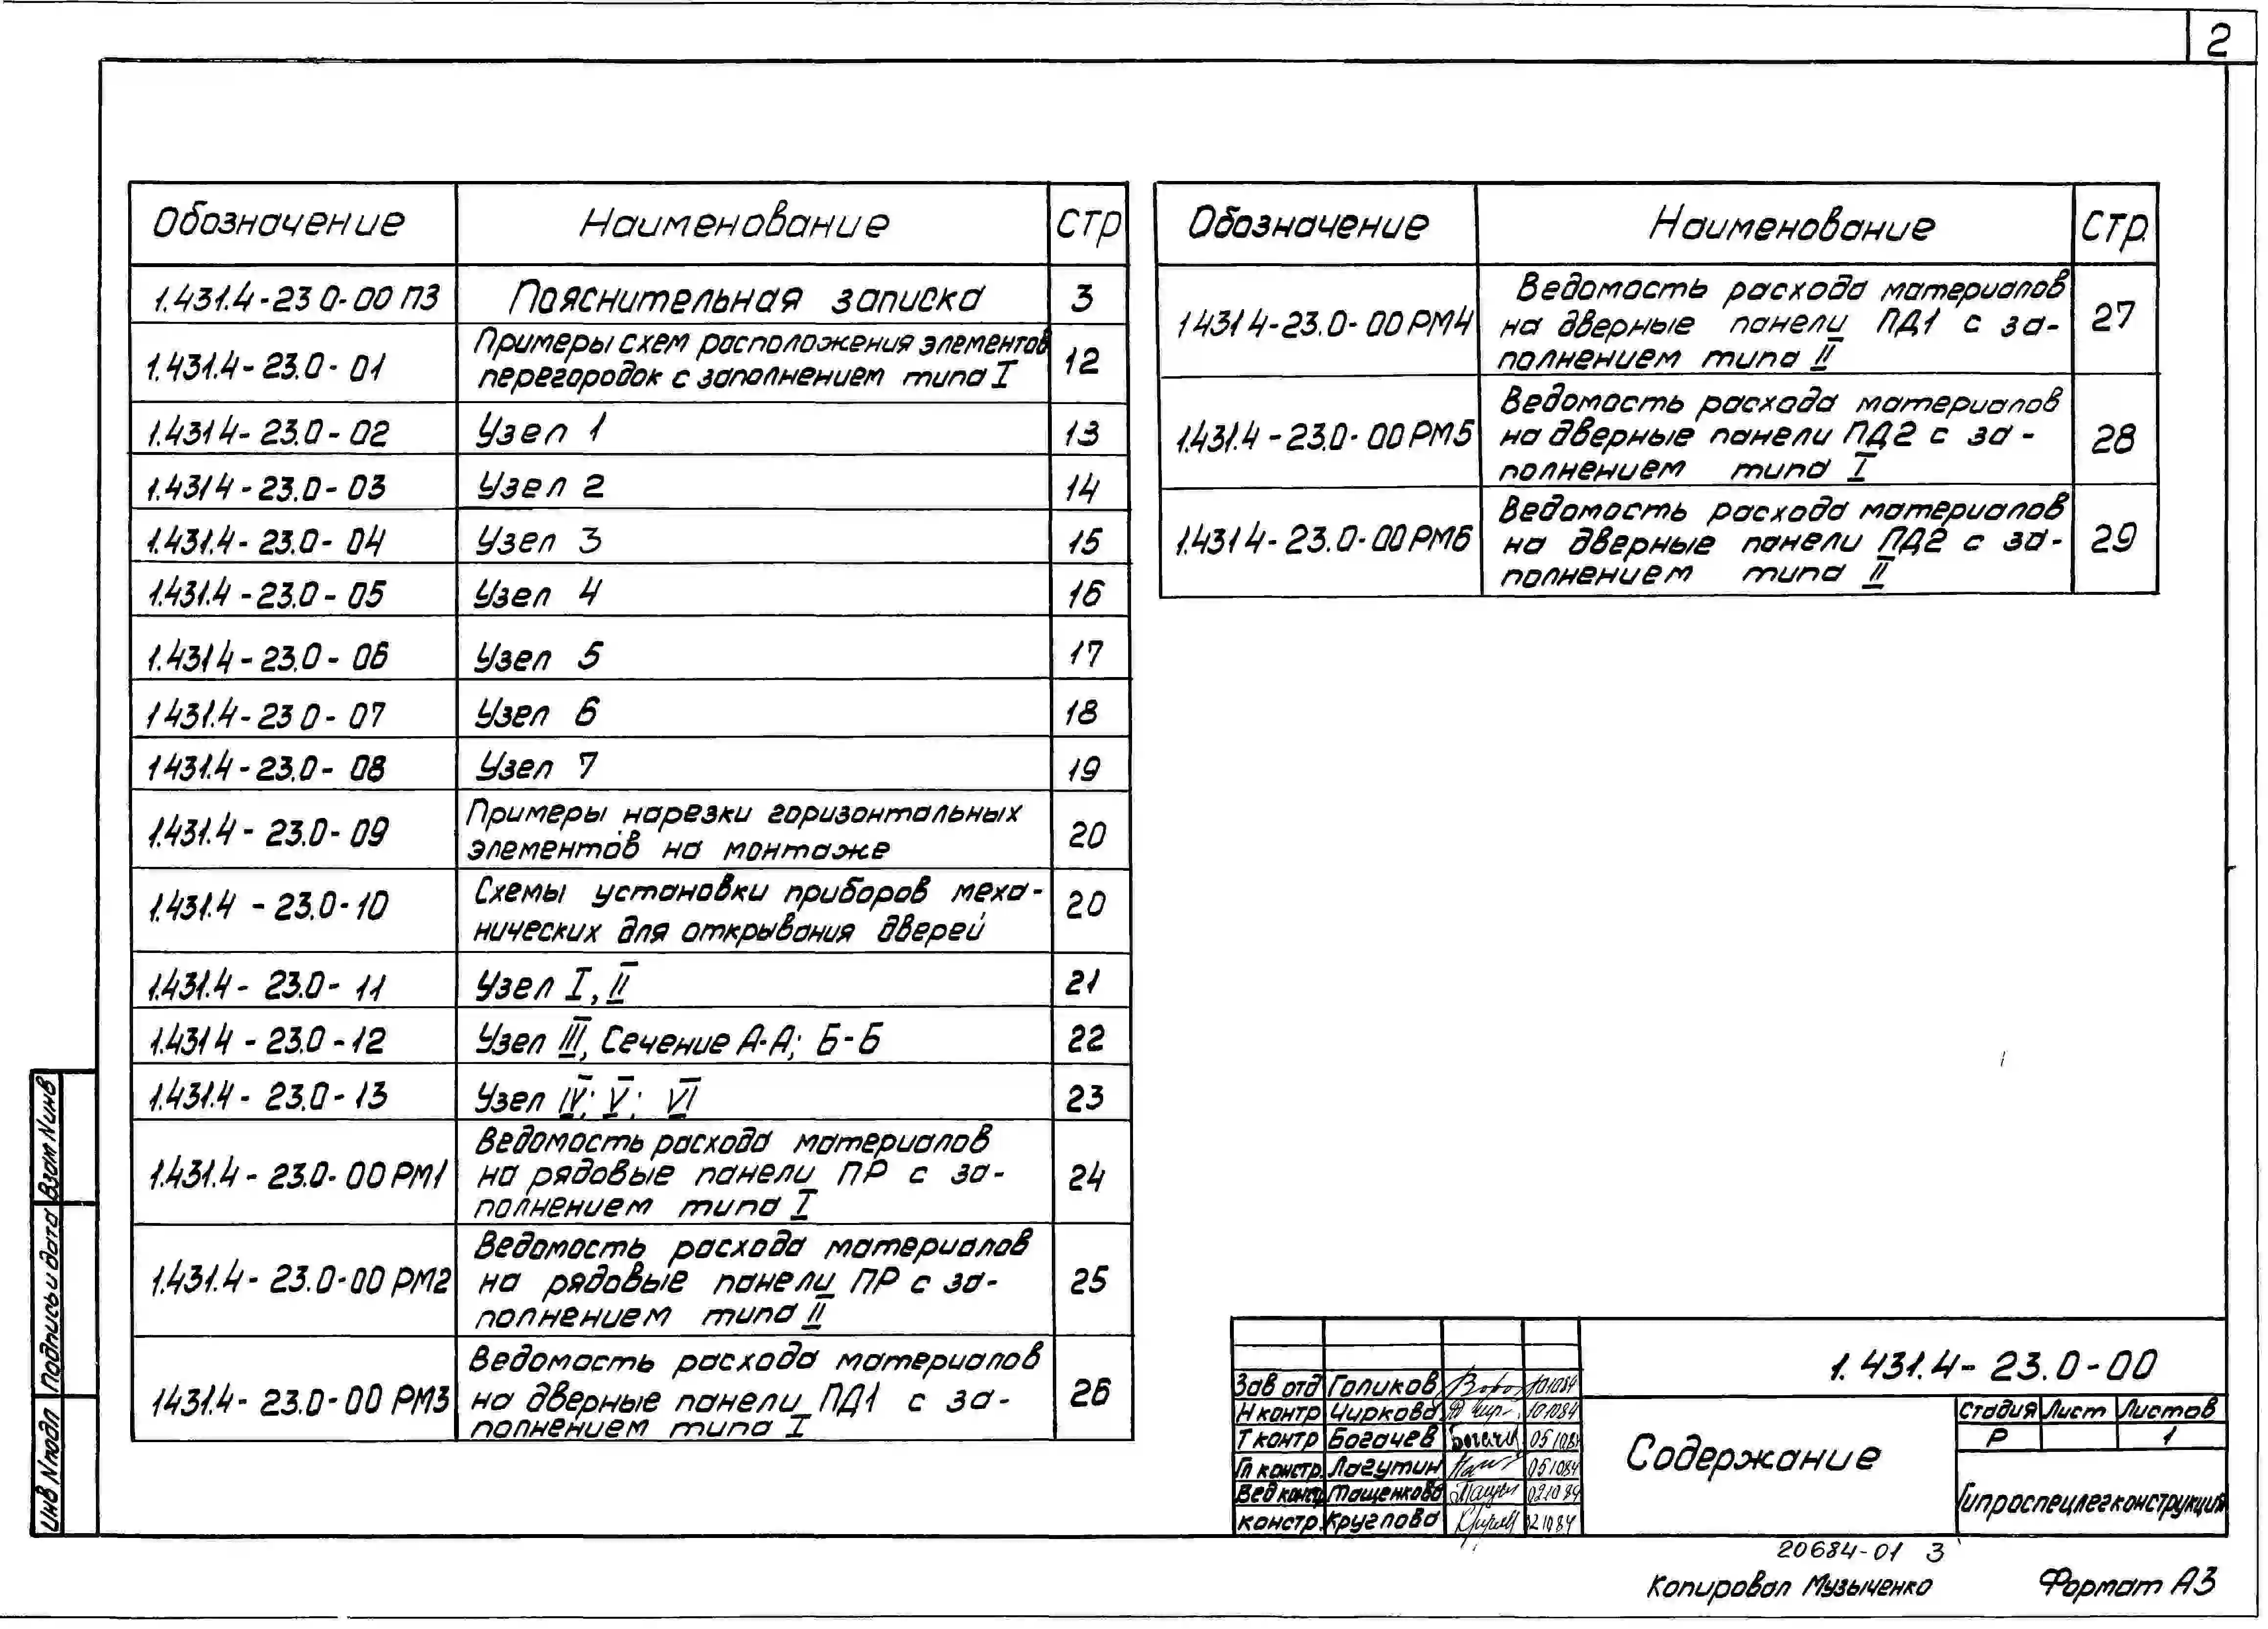 2
Обозначение Наименование Стр
1.431.4-23 0-00 ПЗ Пояснительная записка 3
1.431.4-23.0-01 Примеры схем расположения элементов
перегородок с заполнением типа I 12
1.431 4-23.0-02 Узел 1 13
1.431 4-23.0-03 Узел 2 14
1.431.4-23.0-04 Узел 3 15
1.431.4-23.0-05 Узел 4 16
1.431 4-23.0-06 Узел 5 17
1 431.4-23 0-07 Узел 6 18
1 431.4-23.0-08 Узел 7 19
1.431.4-23.0-09 Примеры нарезки горизонтальных
элементов на монтаже 20
1.431.4-23.0-10 Схемы установки приборов меха-
нических для открывания дверей 20
1.431.4-23.0-11 Узел I, II 21
1.431 4-23.0-12 Узел III, Сечение А-А; Б-Б 22
1.431.4-23.0-13 Узел IV; V; VI 23
1.431.4-23.0-00 РМ1 Ведомость расхода материалов
на рядовые панели ПР с за-
полнением типа I 24
1.431.4-23.0-00 РМ2 Ведомость расхода материалов
на рядовые панели ПР с за-
полнением типа II 25
1431.4-23.0-00 РМ3 Ведомость расхода материалов
на дверные панели ПД1 с за-
полнением типа I 26
Обозначение Наименование Стр.
1 431 4-23.0-00 РМ4 Ведомость расхода материалов
на дверные панели ПД1 с за-
полнением типа II 27
1.431.4-23.0-00 РМ5 Ведомость расхода материалов
на дверные панели ПД2 с за-
полнением типа I 28
1.431 4-23.0-00 РМ6 Ведомость расхода материалов
на дверные панели ПД2 с за-
полнением типа II 29
Взам N инв
Подпись и дата
Инв N подл
Зав отд Голиков 101084
Н контр Чиркова 101084
Т контр Богачев 051084
Гл констр. Лагутин 051084
Вед констр Тащенкова 021084
констр. Круглова 021084
1.431.4-23.0-00
Содержание
Стадия Лист Листов
Р 1
Гипроспецлегконструкция
20684-01 3
Копировал Музыченко Формат А3